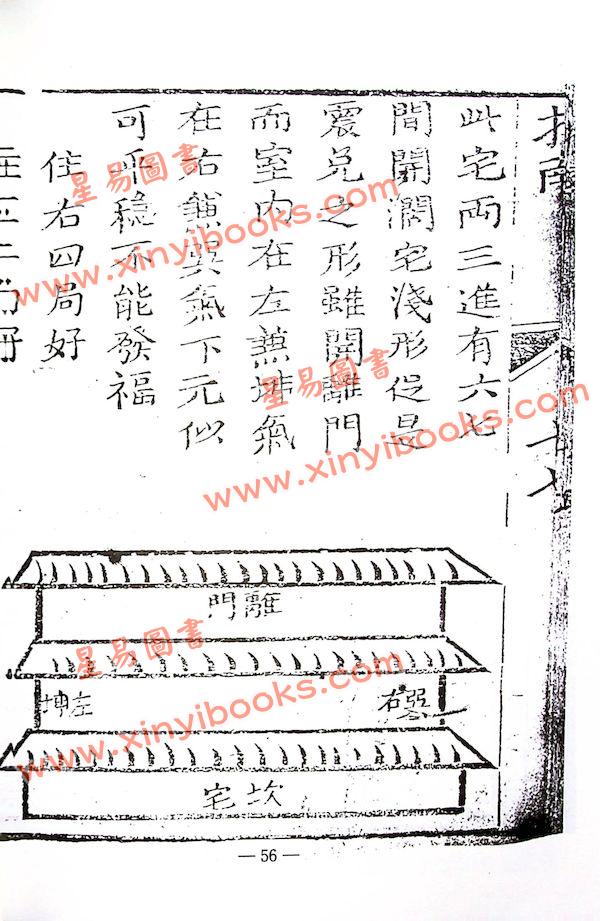 指南
此宅両三進有六七
間開濶宅淺形促是
震兌之形雖開離門
而室内在左兼坤氣
在右兼巽氣下元似
可平穩不能發福
住右四局好
離門
巽右
左坤
坎宅
— 56 —
星易圖書
www.xinyibooks.com
星易圖書
www.xinyibooks.com
星易圖書
www.xinyibooks.com